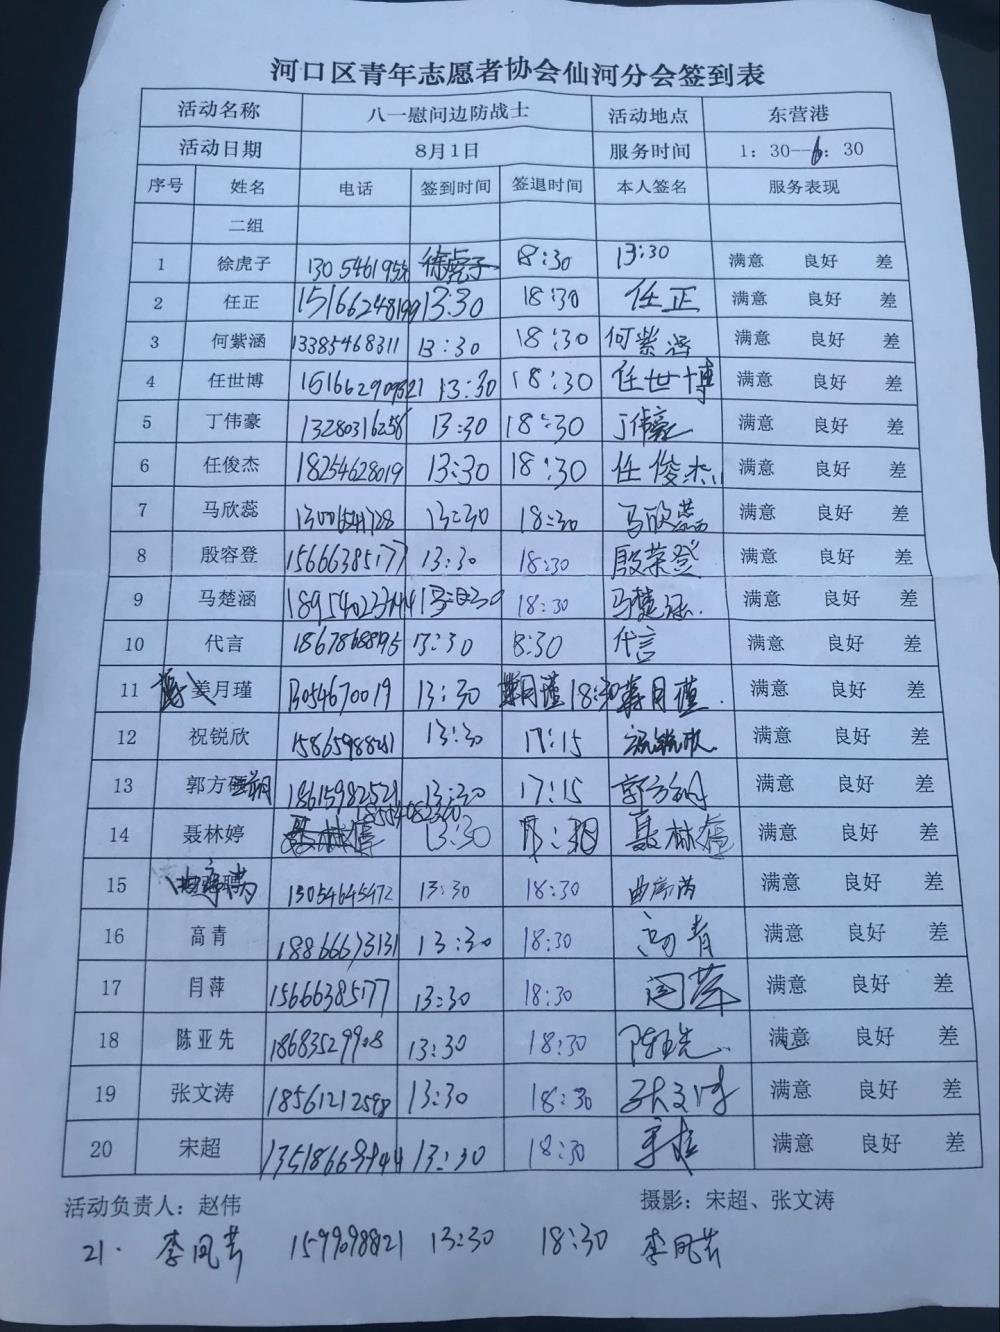 河口区青年志愿者协会仙河分会签到表
活动名称 八一慰问边防战士 活动地点 东营港
活动日期 8月1日 服务时间 1：30--6：30
序号 姓名 电话 签到时间 签退时间 本人签名 服务表现
二组
1 徐虎子 徐虎子 18:30 13:30 满意 良好 差
2 任正 15166248199 13:30 18:30 任正 满意 良好 差
3 何紫涵 13385468311 13:30 18:30 何紫涵 满意 良好 差
4 任世博 13:30 18:30 任世博 满意 良好 差
5 丁伟豪 13280316258 13:30 18:30 丁伟豪 满意 良好 差
6 任俊杰 18254628019 13:30 18:30 任俊杰 满意 良好 差
7 马欣蕊 13:30 18:30 马欣蕊 满意 良好 差
8 殷容登 15666385177 13:30 18:30 殷荣登 满意 良好 差
9 马楚涵 18:30 马楚涵 满意 良好 差
10 代言 13:30 8:30 代言 满意 良好 差
11 姜月瑾 13054670019 13:30 18:30 满意 良好 差
12 祝锐欣 13:30 17:15 满意 良好 差
13 郭方 18615982521 13:30 17:15 满意 良好 差
14 聂林婷 13:30 聂林婷 满意 良好 差
15 13054645472 13:30 18:30 满意 良好 差
16 高青 18866673131 13:30 18:30 高青 满意 良好 差
17 闫萍 15666385177 13:30 18:30 闫萍 满意 良好 差
18 陈亚先 18683529908 13:30 18:30 陈亚先 满意 良好 差
19 张文涛 18561212598 13:30 18:30 张文涛 满意 良好 差
20 宋超 13:30 18:30 宋超 满意 良好 差
活动负责人：赵伟 摄影：宋超、张文涛
21. 李凤芸 15990988121 13:30 18:30 李凤芸